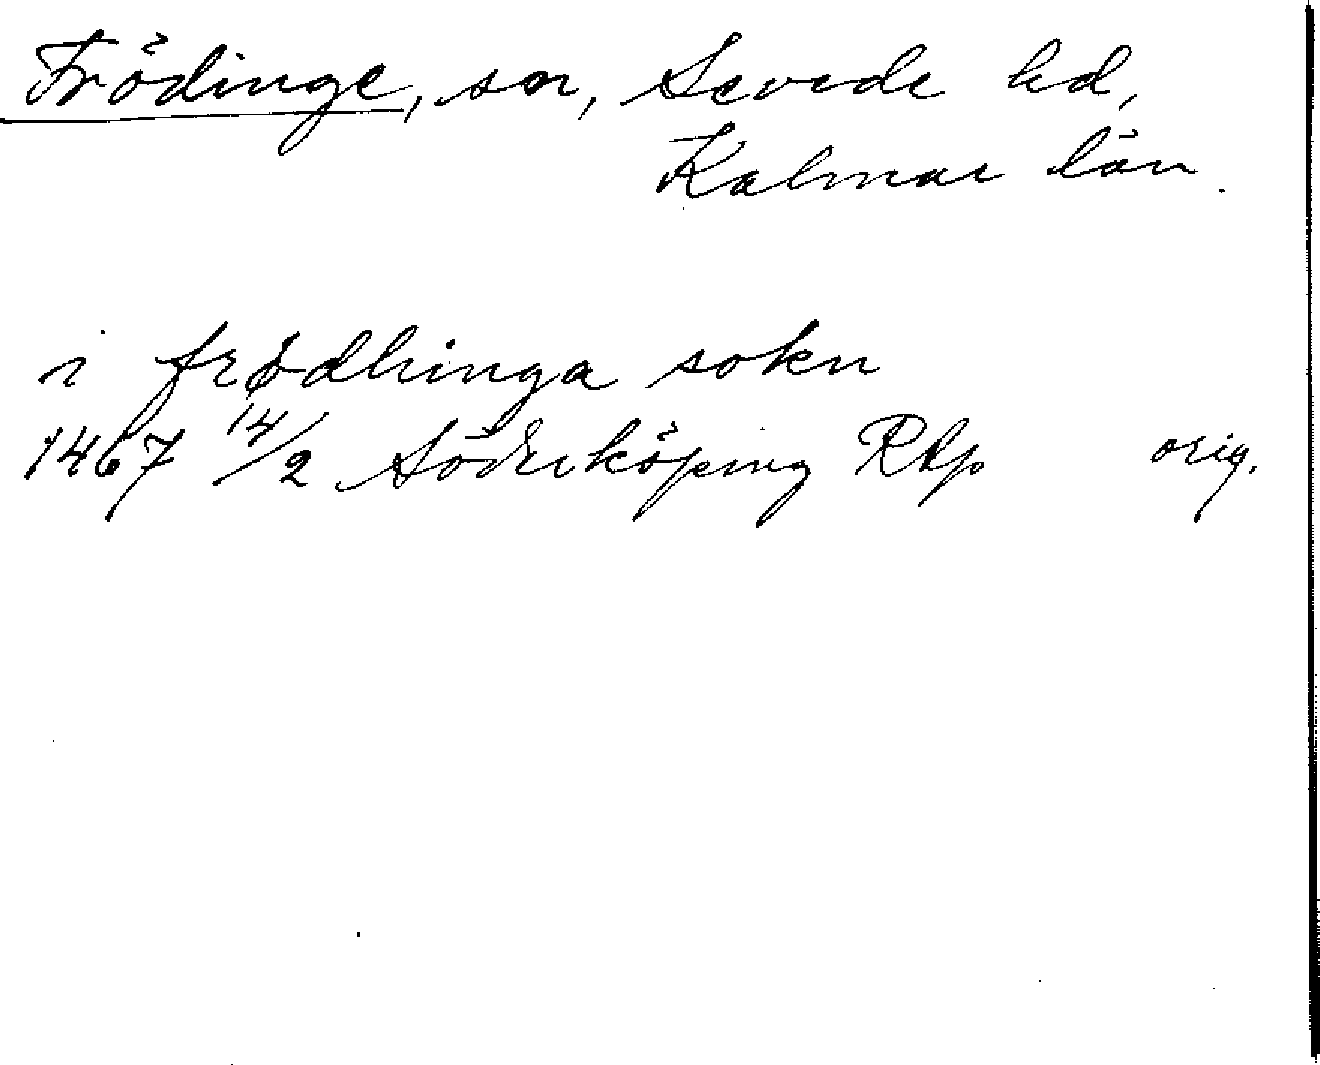 Frödinge, sn, Sevede hd,
Kalmar län.
i frødhinga sokn
1467 14/2 Söderköping RAp orig.